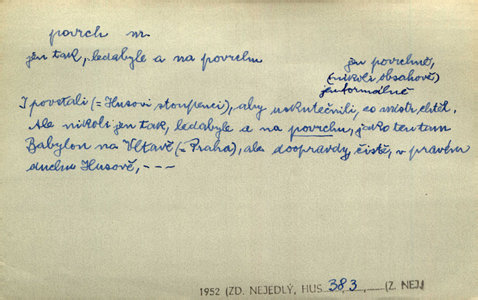 povrch m.
jen tak, ledabyle a na povrchu
jen povrchně,
(nikoli obsahově)
jen formálně
I povstali (= Husovi stoupenci), aby uskutečnili, co mistr chtěl.
Ale nikoli jen tak, ledabyle a na povrchu, jako ten tam
Babylon na Vltavě (= Praha), ale doopravdy, čistě, v pravém
duchu Husově, ---
1952 (ZD. NEJEDLÝ, HUS 383, (Z. NEJ.)